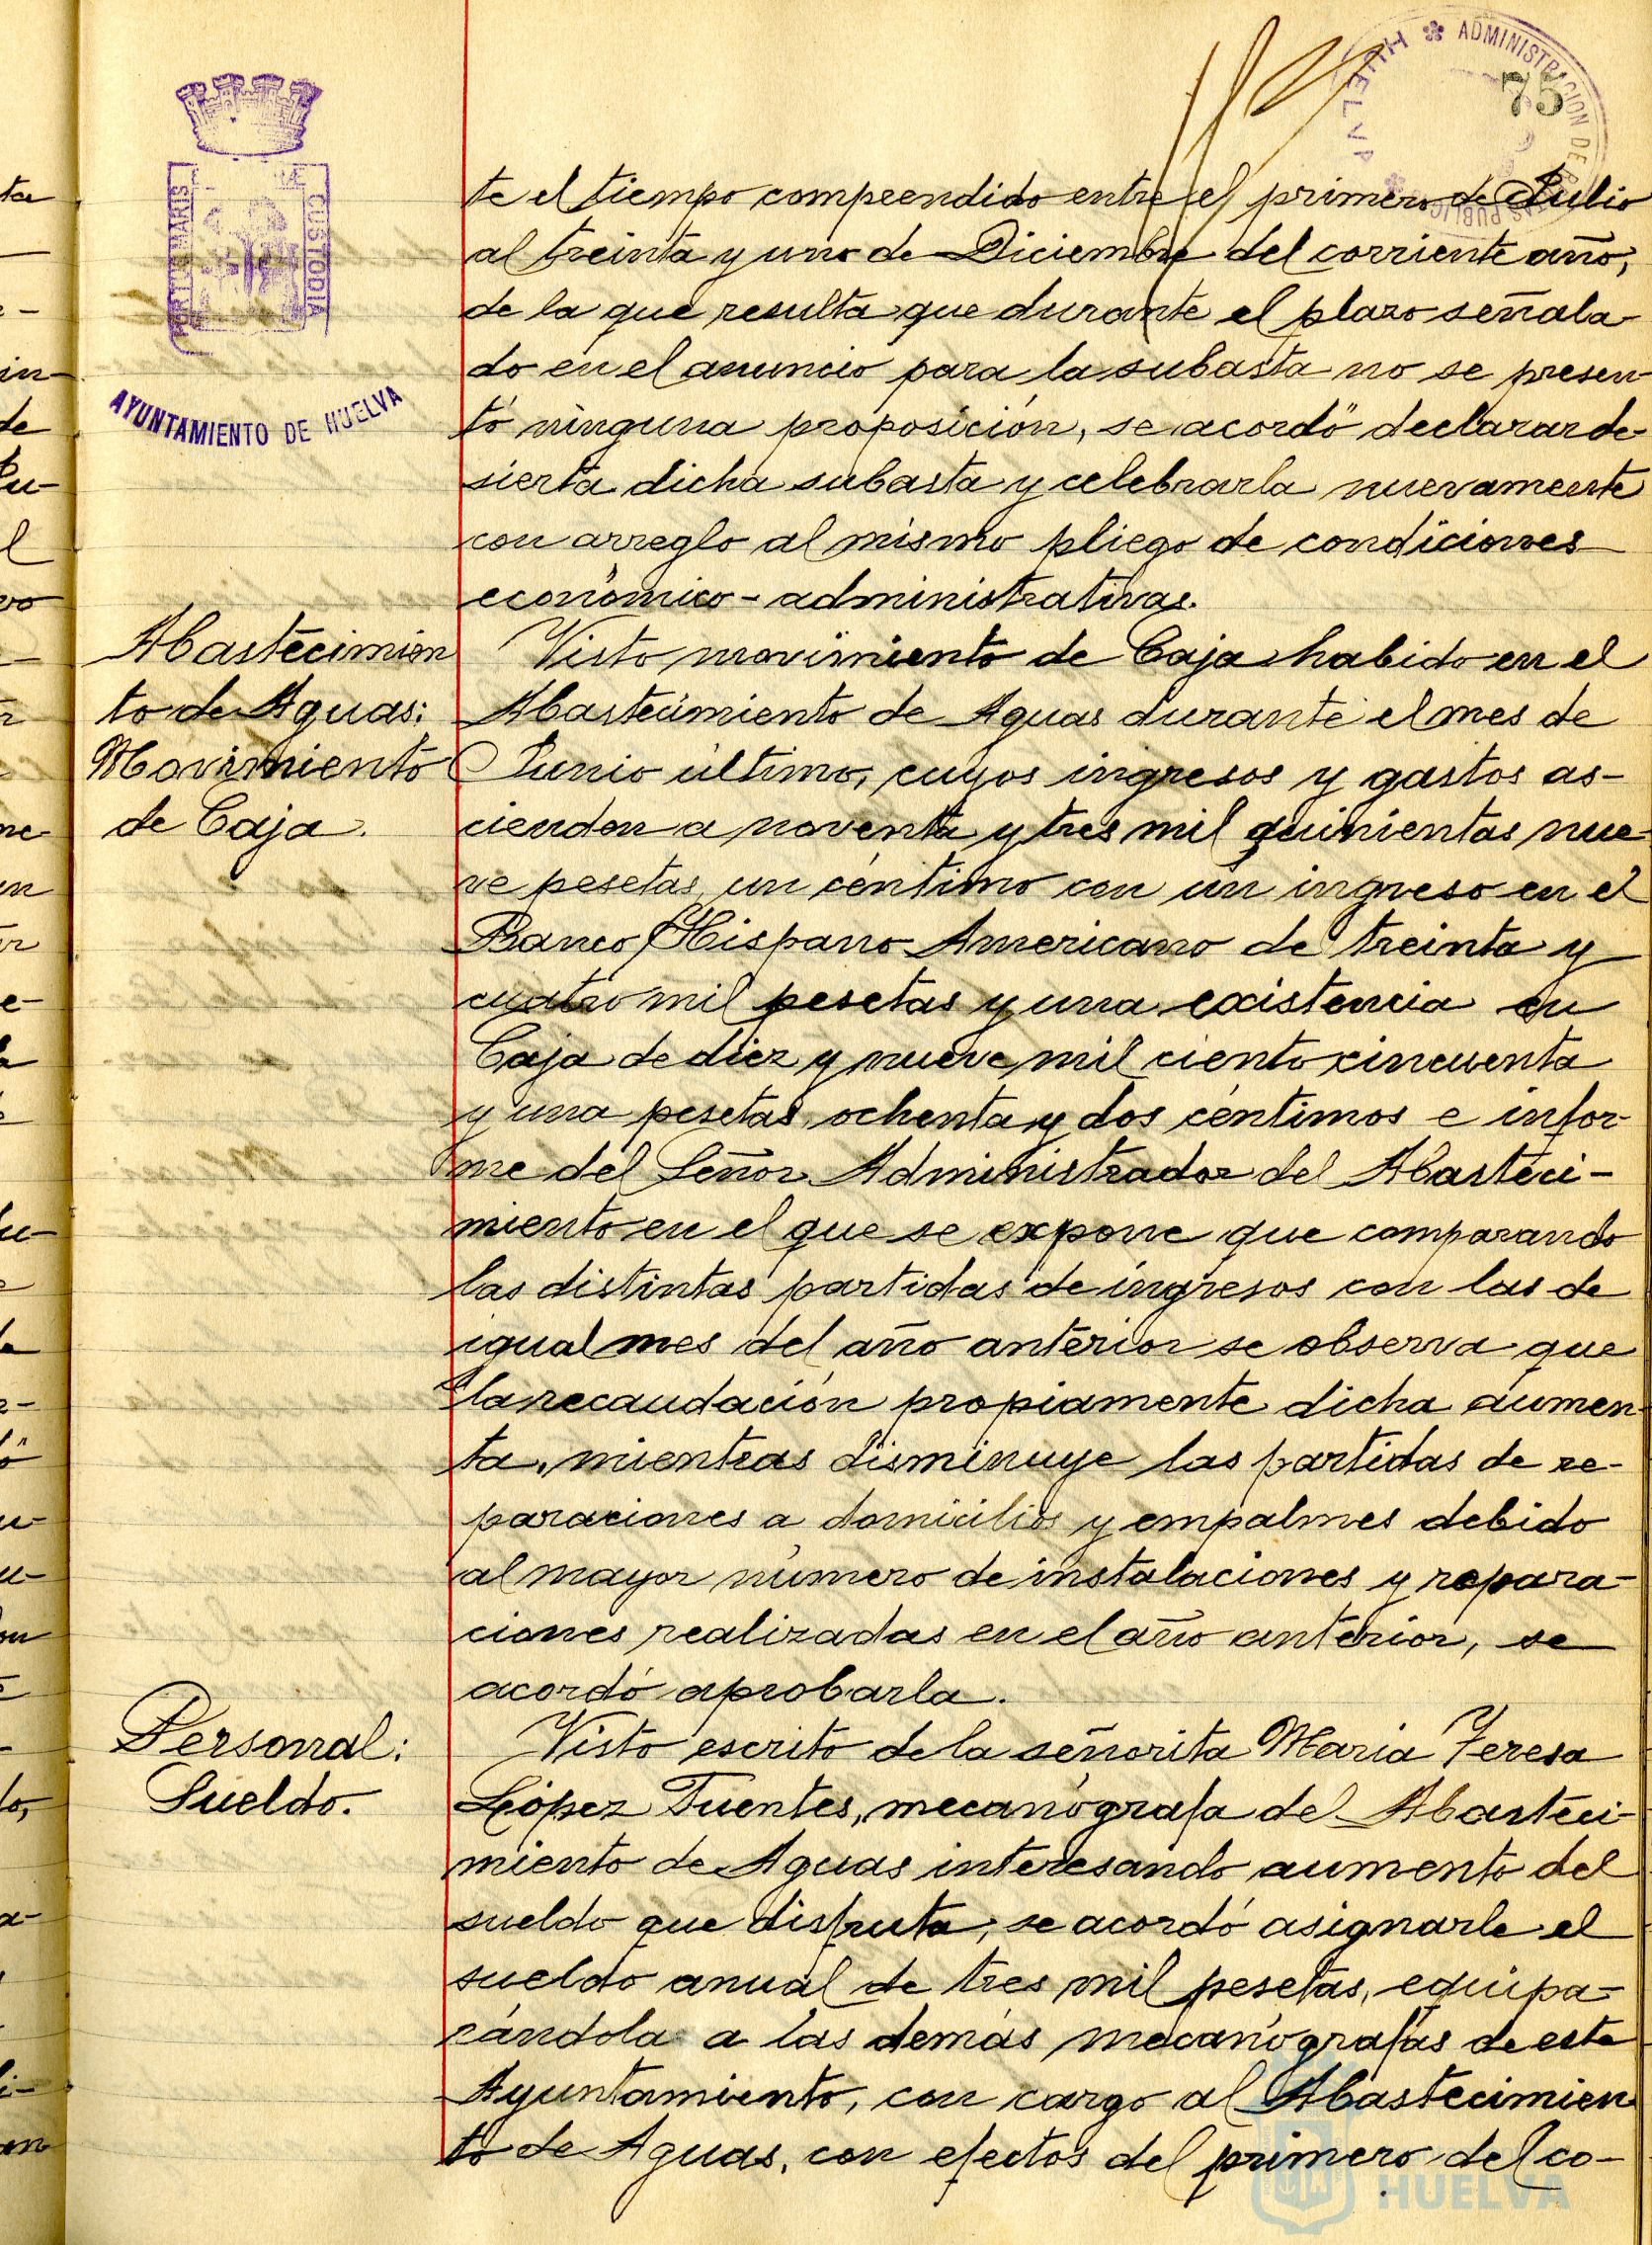 HUELVA ADMINISTRACION DE RENTAS PUBLICAS
75
PORTUS MARIS CUSTODIA
AYUNTAMIENTO DE HUELVA
te el tiempo compeendido entre el primero de Julio
al treinta y uno de Diciembre del corriente año,
de la que resulta que durante el plazo señala-
do en el anuncio para la subasta no se presen-
tó ninguna proposición, se acordó declarar de-
sierta dicha subasta y celebrarla nuevamente
con arreglo al mismo pliego de condiciones
económico-administrativas.
Abastecimien
to de Aguas:
Movimiento
de Caja.
Visto movimiento de Caja habido en el
Abastecimiento de Aguas durante el mes de
Junio último, cuyos ingresos y gastos as-
cienden a noventa y tres mil quinientas nue-
ve pesetas un céntimo con un ingreso en el
Banco Hispano Americano de treinta y
cuatro mil pesetas y una existencia en
Caja de diez y nueve mil ciento cincuenta
y una pesetas ochenta y dos céntimos e infor-
me del Señor Administrador del Abasteci-
miento en el que se expone que comparando
las distintas partidas de ingresos con las de
igual mes del año anterior se observa que
la recaudación propiamente dicha aumen-
ta, mientras disminuye las partidas de re-
paraciones a domicilios y empalmes debido
al mayor número de instalaciones y repara-
ciones realizadas en el año anterior, se
acordó aprobarla.
Personal:
Sueldo.
Visto escrito de la señorita Maria Teresa
López Fuentes, mecanógrafa del Abasteci-
miento de Aguas interesando aumento del
sueldo que disfruta, se acordó asignarle el
sueldo anual de tres mil pesetas, equipa-
rándola a las demás mecanógrafas de este
Ayuntamiento, con cargo al Abastecimien
to de Aguas, con efectos del primero del co-
HUELVA